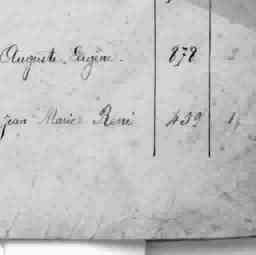 Auguste Eugène. 878 2
Jean Marie René 439 1